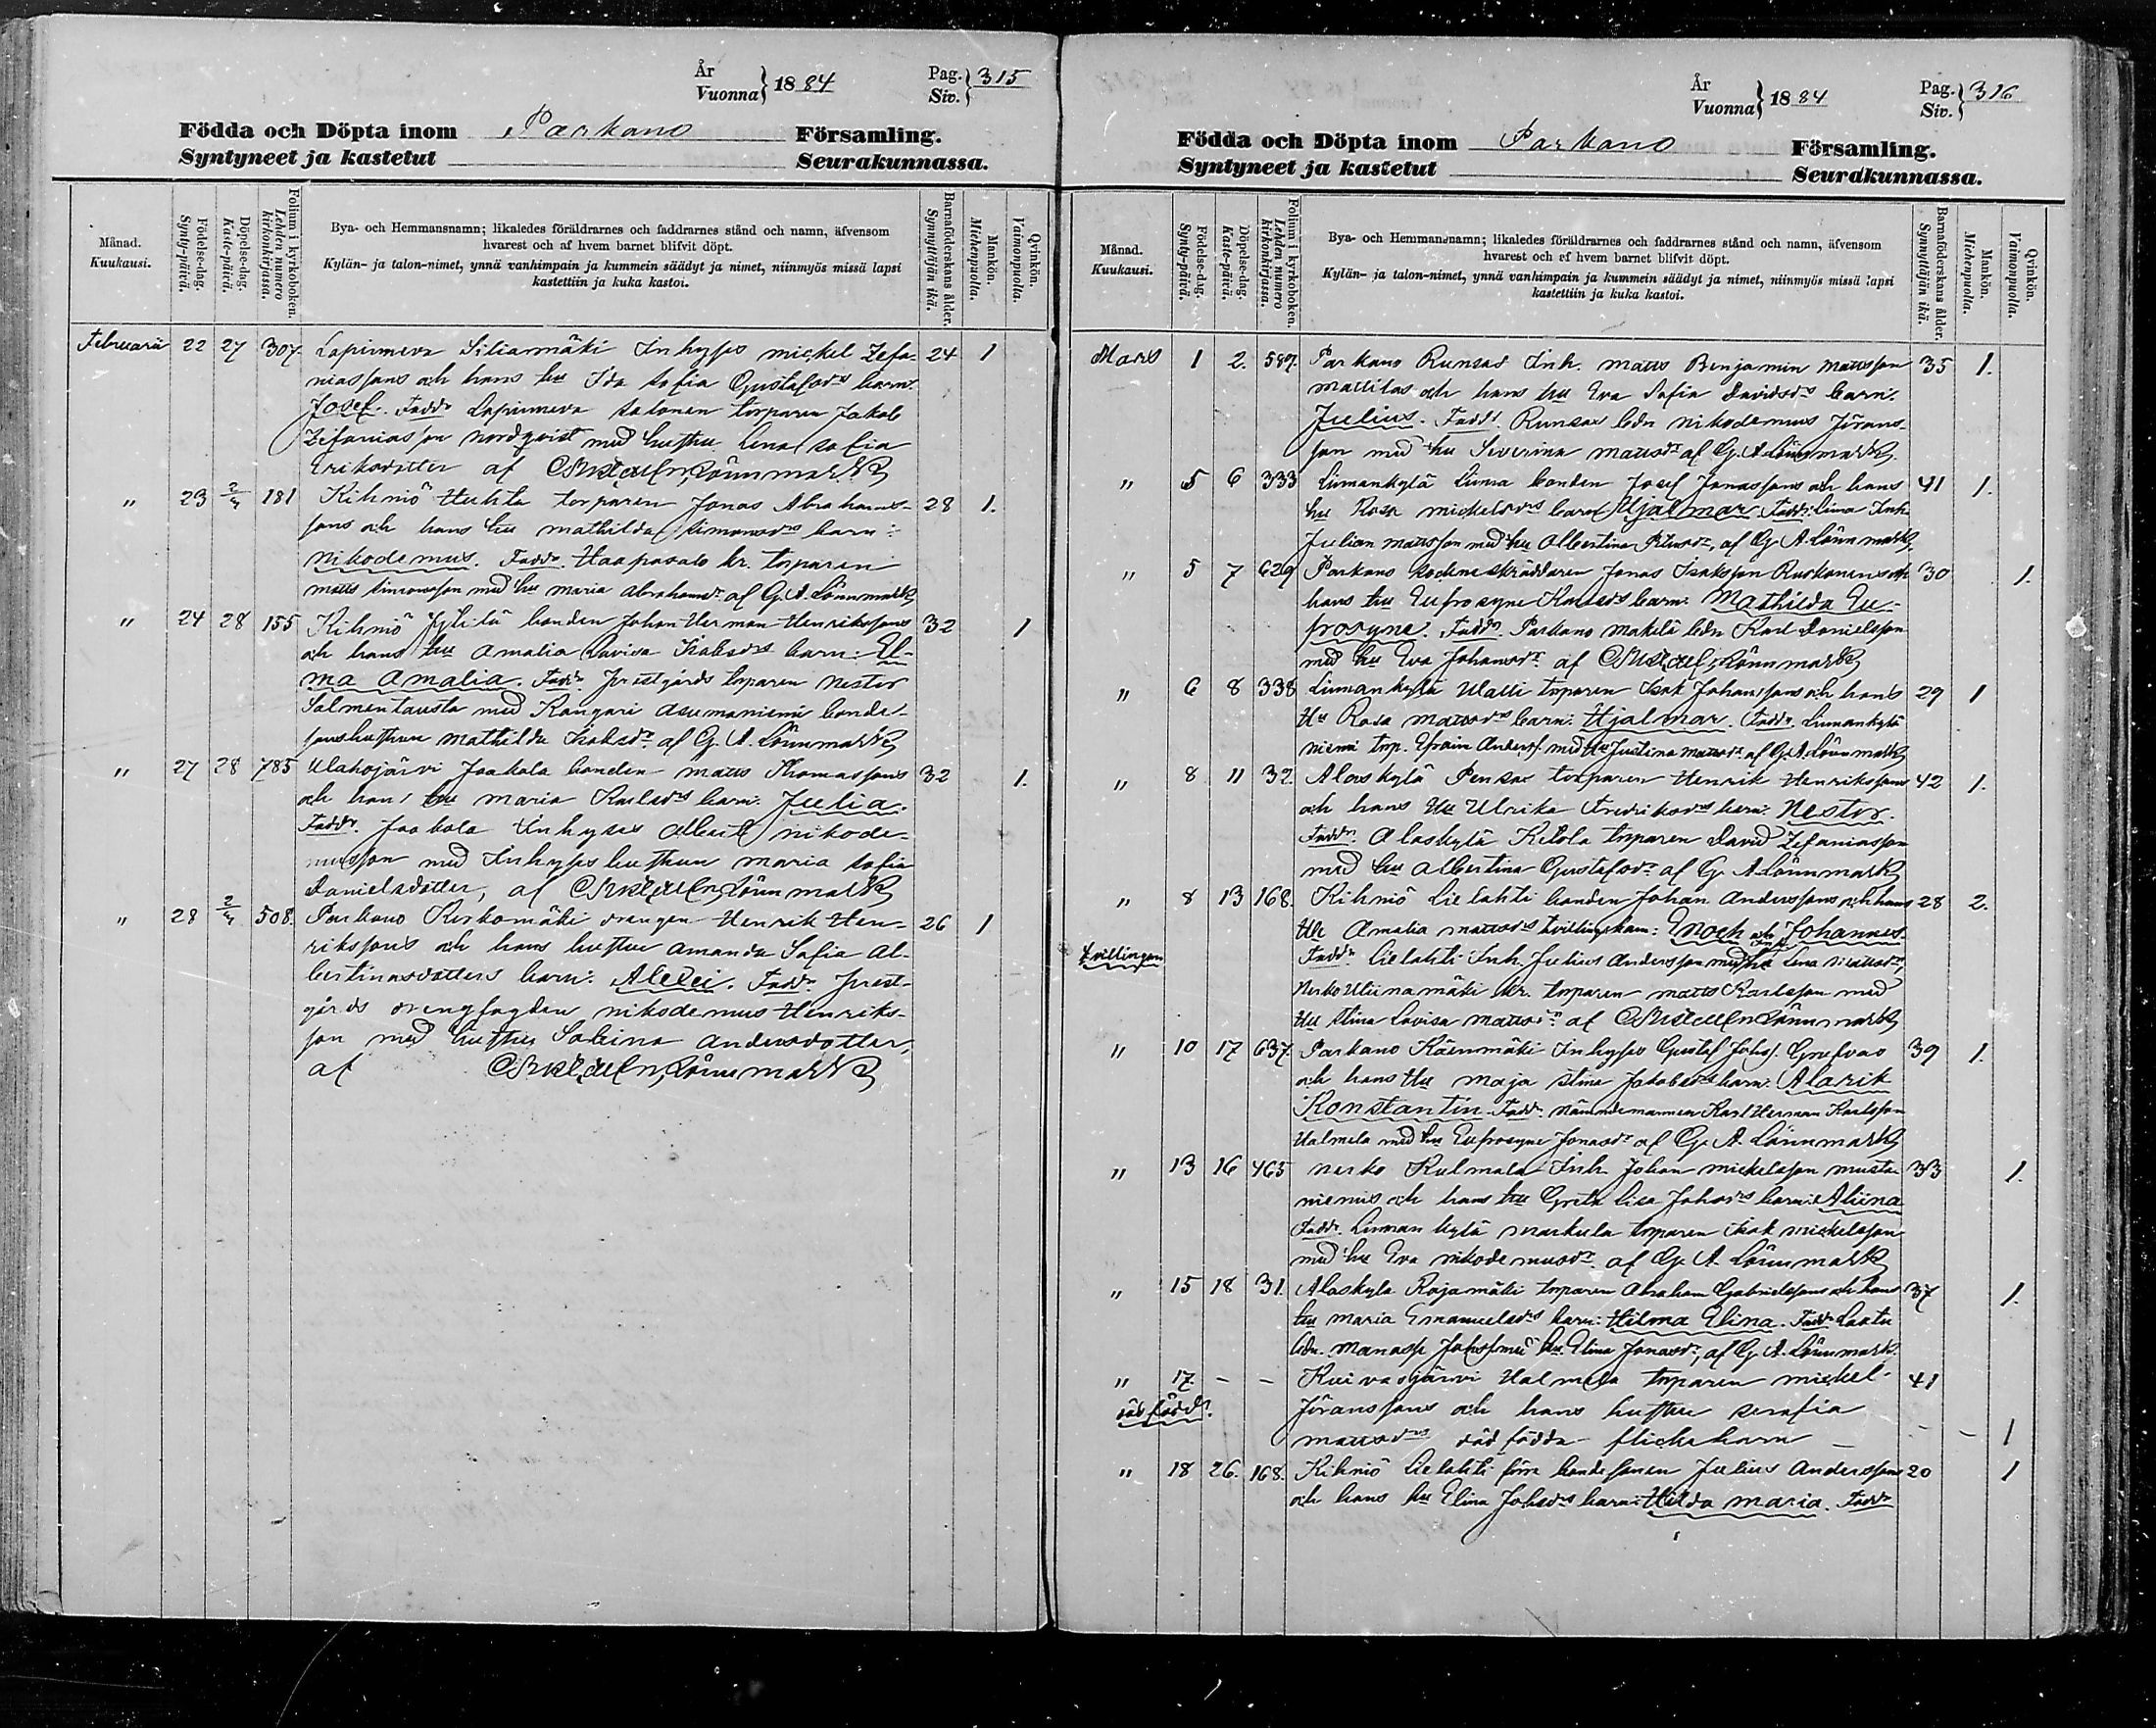 År
Vuonna } 1884
Pag.
Siv. } 315
Födda och Döpta inom Parkano Församling.
Syntyneet ja kastetut Seurakunnassa.
Månad.
Kuukausi.
Födelse-dag.
Synty-päivä.
Döpelse-dag.
Kaste-päivä.
Folium i kyrkoboken.
Lehden numero kirkonkirjassa.
Bya- och Hemmansnamn; likaledes föräldrarnes och faddrarnes stånd och namn, äfvensom
hvarest och af hvem barnet blifvit döpt.
Kylän- ja talon-nimet, ynnä vanhimpain ja kummein säädyt ja nimet, niinmyös missä lapsi
kastettiin ja kuka kastoi.
Barnaföderskans ålder.
Synnyttäjän ikä.
Mankön.
Miehenpuolia.
Qvinkön.
Vaimonpuolia.
Februarii 22 27 307. Lapinneva Siliarmäki Inhyses Mickel Zefa- 24 1
niassons och hans hu Ida Sofia Gustafsdrs barn:
Josef. Faddr Lapinneva Salonen torparen Jakob
Zefaniasson Nordqvist med hustru Lena Sofia
Eriksdotter af Lönnmark
" 23 2/3 181 Kihniö Huhta torparen Jonas Abrahams- 28 1.
sons och hans hu Mathilda Simonsdrs barn:
Nikodemus. Faddr. Haapasalo kr. torparen
Matts Simonsson med hu Maria Abrahamsdr af G. A. Lönnmark
" 24 28 155 Kihniö bonden Johan Herman Henrikssons 32 1
och hans hu Amalia Lovisa Isaksdrs barn: El-
ma Amalia. Faddr. Prestgårds torparen Nestor
Salmentausta med Kangari Asumaniemi bonde-
sonshustrun Mathilda Isaksdr af G. A. Lönnmark
" 27 28 785 Ulahojärvi Jaakola bonden Matts Thomassons 32 1.
och hans hu Maria Karlsdrs barn: Julia.
Faddr. Jaakola Inhyses Albert Nikode-
musson med Inhyses hustrun Maria Sofia
Danielsdotter, af Lönnmark
" 28 2/3 508. Parkano Kirkomäki drängen Henrik Hen- 26 1
rikssons och hans hustru Amanda Sofia Al-
bertinasdotters barn: Aleksi. Faddr. Prest-
gårds drengfogden Nikodemus Henriks-
son med hustru Sabina Andersdotter,
af Lönnmark
År
Vuonna } 1884
Pag.
Siv. } 316
Födda och Döpta inom Parkano Församling.
Syntyneet ja kastetut Seurakunnassa.
Månad.
Kuukausi.
Födelse-dag.
Synty-päivä.
Döpelse-dag.
Kaste-päivä.
Folium i kyrkoboken.
Lehden numero kirkonkirjassa.
Bya- och Hemmansnamn; likaledes föräldrarnes och faddrarnes stånd och namn, äfvensom
hvarest och af hvem barnet blifvit döpt.
Kylän- ja talon-nimet, ynnä vanhimpain ja kummein säädyt ja nimet, niinmyös missä lapsi
kastettiin ja kuka kastoi.
Barnaföderskans ålder.
Synnyttäjän ikä.
Mankön.
Miehenpuolia.
Qvinkön.
Vaimonpuolia.
Mars 1 2. 587. Parkano Runsas Inh. Matts Benjamin Mattsson 35 1.
Mattilas och hans hu Eva Sofia Davidsdrs barn:
Julius. Faddr. Runsas bdn Nikodemus Jörans-
son med hu Severina Mattsdr af G. A. Lönnmark.
" 5 6 333 Linnankylä Linna bonden Josef Jonassons och hans 41 1.
hu Rosa Mickelsdrs barn Hjalmar Faddr: Linna Inh.
Julian Mattsson med hu Albertina, af G. A. Lönnmark.
" 5 7 629 Parkano sockneskräddaren Jonas Isaksson Ruskanens och 30 1.
hans hu Eufrosyne Karlsdrs barn: Mathilda Eu-
frosyne. Faddr. Parkano Mäkelä bdn Karl Danielsson
med hu Eva Johansdr af Lönnmark
" 6 8 338 Linnankylä Ulalli torparen Isak Johanssons och hans 29 1
Hu Rosa Mattsdrs barn: Hjalmar. Faddr. Linnankylä
Niemi torp. Efraim Anderss. med Hu Justina Mattsdr af G. A. Lönnmark
" 8 11 32. Alaskylä Pensas torparen Henrik Henrikssons 42 1.
och hans Hu Ulrika Fredriksdrs barn: Nestor.
Faddr. Alaskylä Ketola torparen David Zefaniasson
med hu Albertina Gustafsdr af G. A. Lönnmark
" 8 13 168. Kihniö Lielahti bonden Johan Anderssons och hans 28 2.
Hu Amalia Mattsdrs tvillingbarn: Enoch och Johannes.
Tvillingar Faddr. Lielahti Inh. Julius Andersson med hu Lena,
Nerko Uliinamäki kr. torparen Matts Karlsson med
Hu Stina Lovisa Mattsdr af Lönnmark
" 10 17 637. Parkano Käenmäki Inhyses Gustaf Johs. Grefvas 39 1.
och hans Hu Maja Stina Jakobsdrs barn: Alarik
Konstantin. Faddr. nämndemannen Karl Herman Karlsson
Halmela med hu Eufrosyne Jonasdr af G. A. Lönnmark
" 13 16 465 Nerko Kulmala Inh. Johan Mickelsson Musta- 33 1.
niemis och hans hu Greta Lisa Johsdrs barn: Aliina
Faddr. Linnankylä Markula torparen Isak Mickelsson
med hu Eva Nikodemusdr af G. A. Lönnmark
" 15 18 31. Alaskylä Rajamäki torparen Abraham Gabrielssons och hans 37 1.
hu Maria Emanuelsdrs barn: Hilma Elina. Faddr Laatu
bdn. Manasse Johss med hu. Elina Jonasdr, af G. A. Lönnmark.
" 17. - - Kuivasjärvi Halmela torparen Mickel 41
död född. Jöranssons och hans hustru Serafia
Mattsdrs död födda flickebarn - - - 1
" 18 26. 168. Kihniö Lielahti förre bondesonen Julius Anderssons 20 1
och hans hu Elina Johsdrs barn: Hilda Maria. Faddr